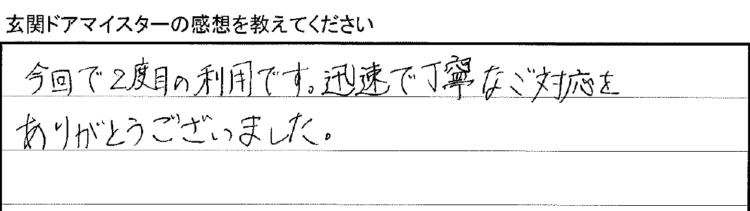 玄関ドアマイスターの感想を教えてください
今回で2度目の利用です。迅速で丁寧なご対応を
ありがとうございました。